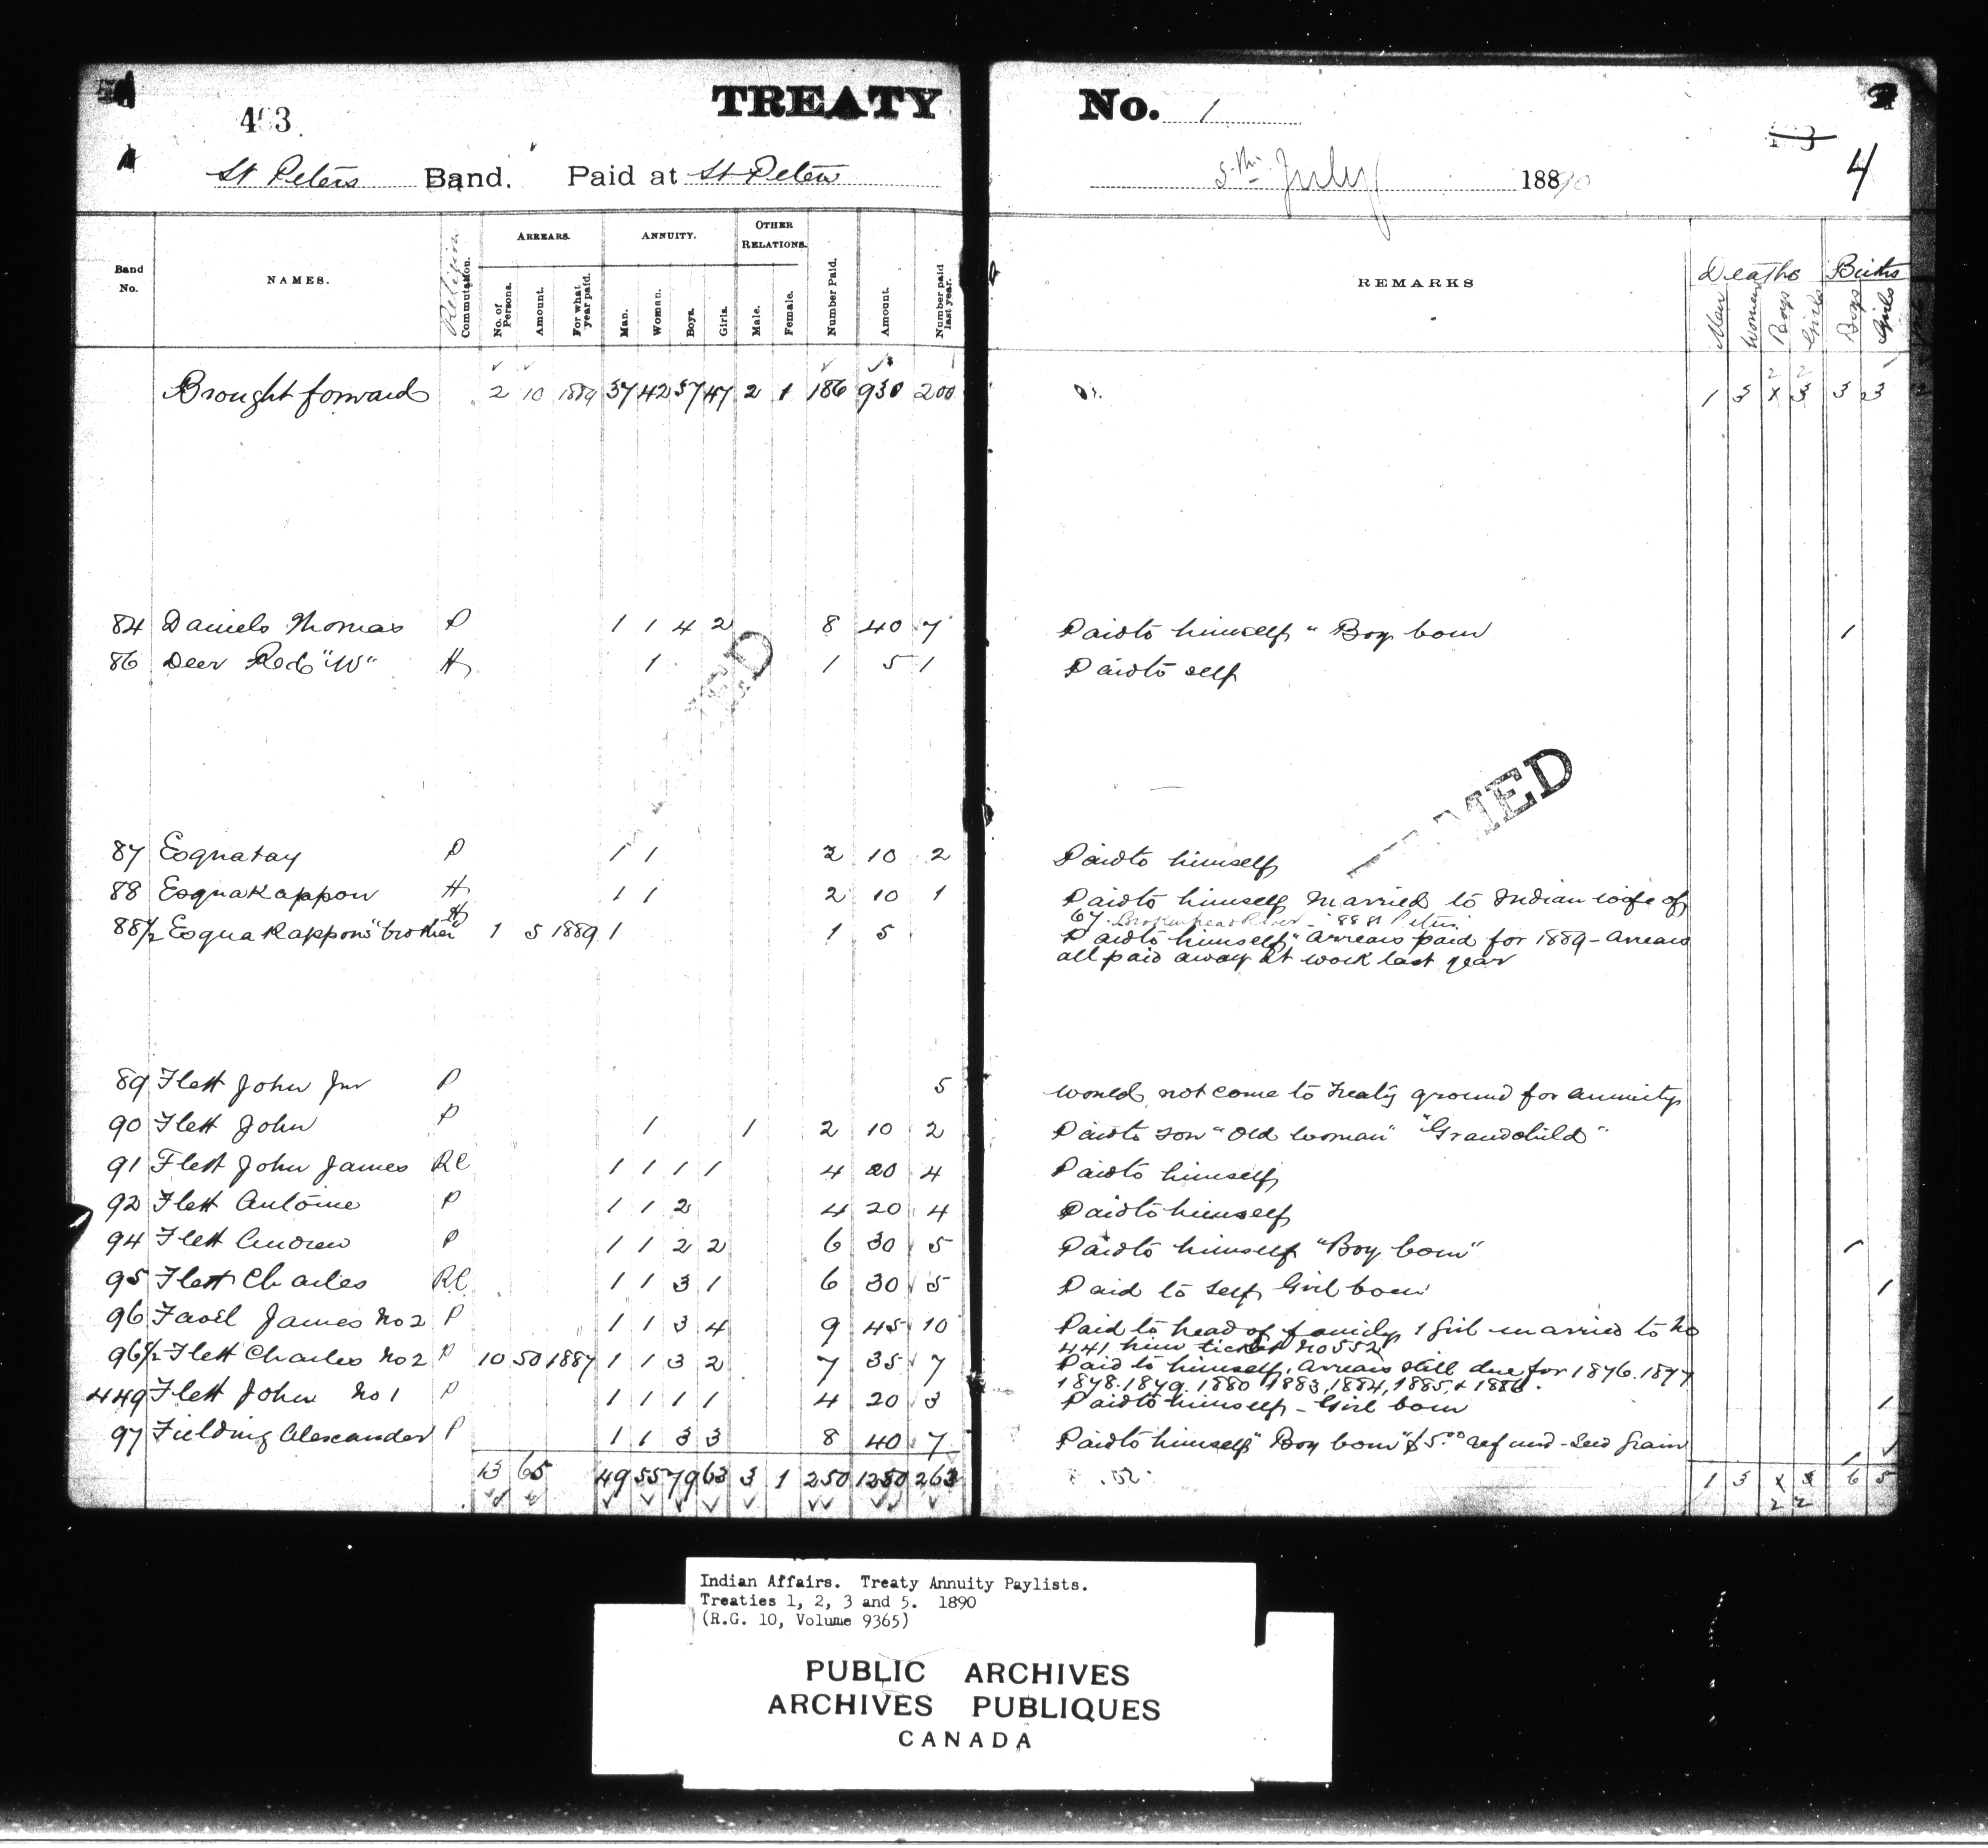 TREATY No. 1
403
4
St Peters Band. Paid at St Peters
5th July 1890
Band No. NAMES. Religion Commutation. ARREARS. No. of Persons. Amount. For what year paid. ANNUITY. Man. Woman. Boys. Girls. OTHER RELATIONS. Male. Female. Number Paid. Amount. Number paid last year. REMARKS Deaths Men Women Boys Girls Births Boys Girls
2 2
Brought forward 2 10 1889 37 42 57 47 2 1 186 930 200 1 3 x 3 3 3
84 Daniels Thomas P 1 1 4 2 8 40 7 Paid to himself " Boy born 1
86 Deer Red "W" H 1 1 5 1 Paid to self
MED
87 Esquatay P 1 1 2 10 2 Paid to himself
88 Esquakappow H 1 1 2 10 1 Paid to himself Married to Indian wife of
67 Brokenhead River - 88 St Peters
88 1/2 Esquakappows "brother" H 1 5 1889 1 1 5 Paid to himself " Arrears paid for 1889 - Arrears
all paid away at work last year
89 Flett John Jnr P 5 would not come to treaty ground for annuity
90 Flett John P 1 1 2 10 2 Paid to son "Old woman" "Grandchild"
91 Flett John James RC 1 1 1 1 4 20 4 Paid to himself
92 Flett Antoine P 1 1 2 4 20 4 Paid to himself
94 Flett Andrew P 1 1 2 2 6 30 5 Paid to himself "Boy born" 1
95 Flett Charles RC 1 1 3 1 6 30 5 Paid to self Girl born 1
96 Favel James No 2 P 1 1 3 4 9 45 10 Paid to head of family 1 girl married to No
441 him ticket No 552
96 1/2 Flett Charles No 2 P 10 50 1887 1 1 3 2 7 35 7 Paid to himself, Arrears still due for 1876. 1877
1878. 1879. 1880 1883, 1884, 1885, & 1886.
449 Flett John No 1 P 1 1 1 1 4 20 3 Paid to himself - Girl born 1
97 Fielding Alexander P 1 1 3 3 8 40 7 Paid to himself " Boy born " $5.00 refund - Seed Grain 1
13 65 49 55 79 63 3 1 250 1250 263 1 3 x 3 6 5
2 2
Indian Affairs. Treaty Annuity Paylists.
Treaties 1, 2, 3 and 5. 1890
(R.G. 10, Volume 9365)
PUBLIC ARCHIVES
ARCHIVES PUBLIQUES
CANADA